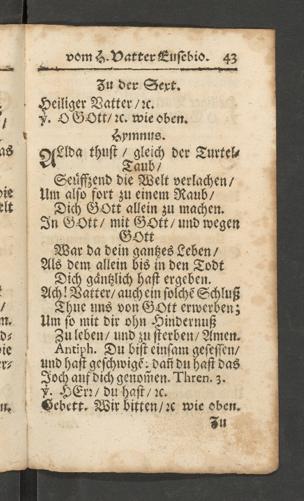 vom H. Vatter Eusebio. 43
Zu der Sext.
Heiliger Vatter / ꝛc.
℣. O GOtt / ꝛc. wie oben.
Hymnus.
ALlda thust / gleich der Turtel-
Taub /
Seüfftzend die Welt verlachen /
Um also fort zu einem Raub /
Dich GOtt allein zu machen.
In GOtt / mit GOtt / und wegen
GOtt
War da dein gantzes Leben /
Als dem allein bis in den Todt
Dich gäntzlich hast ergeben.
Ach! Vatter / auch ein solchē Schluß
Thue uns von GOtt erwerben;
Um so mit dir ohn Hindernuß
Zu leben / und zu sterben / Amen.
Antiph. Du bist einsam gesessen /
und hast geschwigē: dañ du hast das
Joch auf dich genom̃en. Thren. 3.
℣. HErr / du hast / ꝛc.
Gebett. Wir bitten / ꝛc wie oben.
Zu